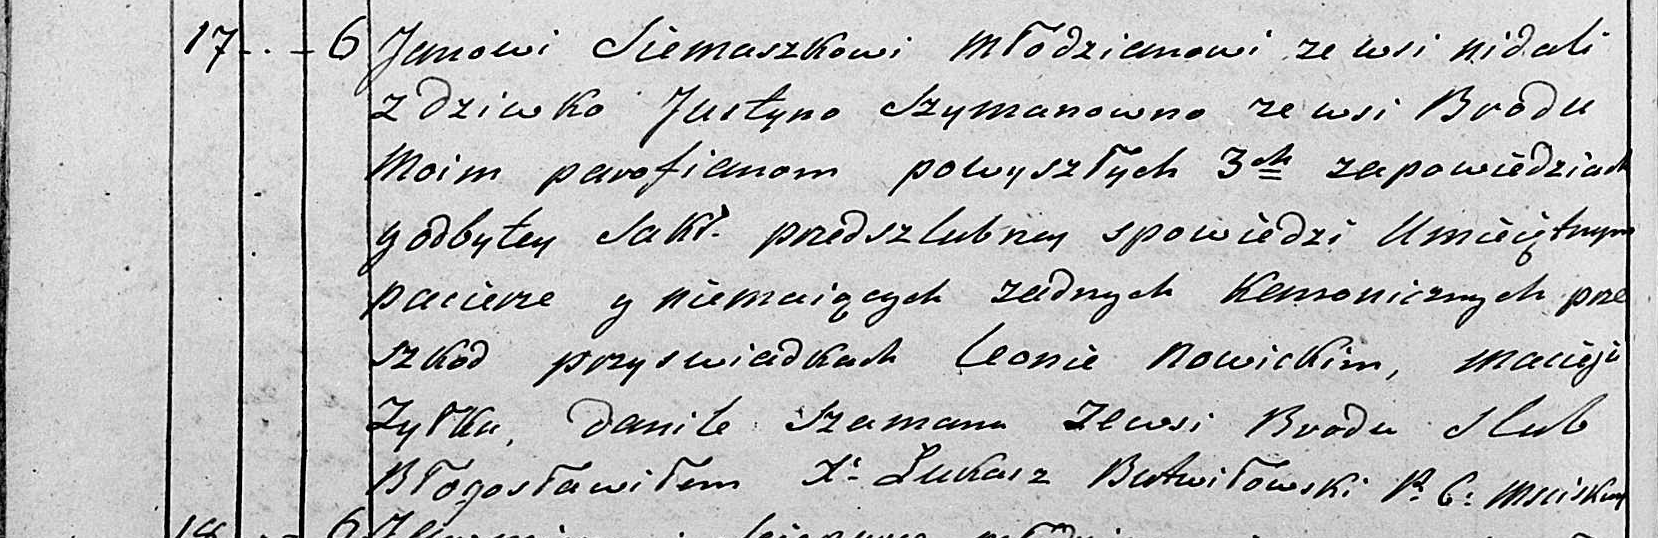 17 - . - 6 Janowi Siemaszkowi młodzianowi ze wsi nidali
z dziwko Justyno Szymanowno ze wsi Brodu
Moim parofianom powyszłych 3ch zapowiedziach
y odbytey Sakr. przedszlubney spowiedzi Umieiętnym
pacierze y niemaiących zadnych Kanonicznych prze
szkod przyswiadkach Leonie Nowickim, Macieju
Zyłka, Danile Szamana Zewsi Brodu Slub
Błogosławiłem X. Łukasz Butwiłowski P. C. Msciskny
18 - - 6